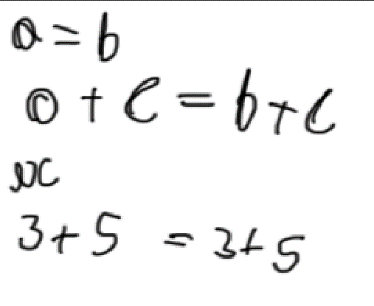 a = b
a + c = b + c
3 + 5 = 3 + 5